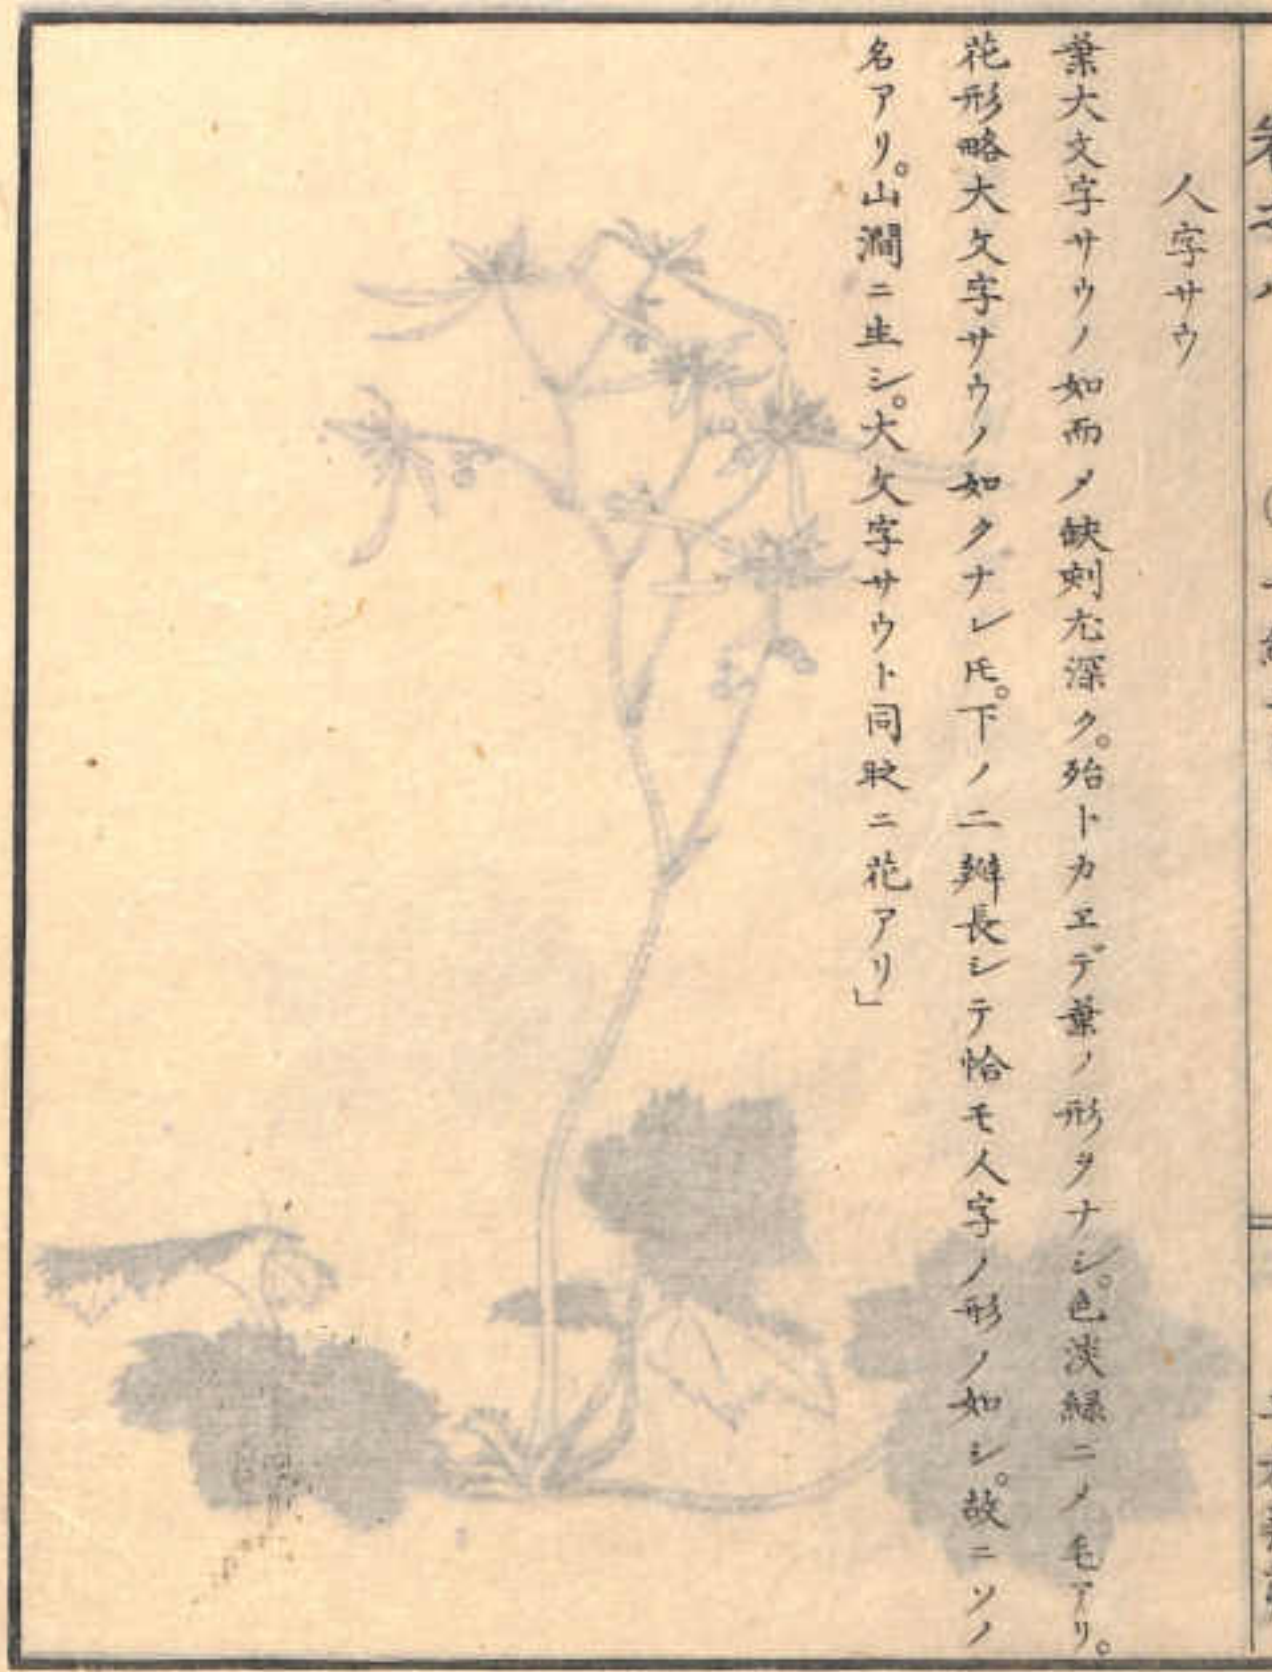 人字サウ
葉大文字サウノ如而メ缺刻尤深ク。殆トカエデ葉ノ形ヲナシ。色淡緑ニメ毛アリ。
花形略大文字サウノ如クナレ𪜈。下ノ二瓣長シテ恰モ人字ノ形ノ如シ。故ニソノ
名アリ。山澗ニ生シ。大文字サウト同時ニ花アリ」